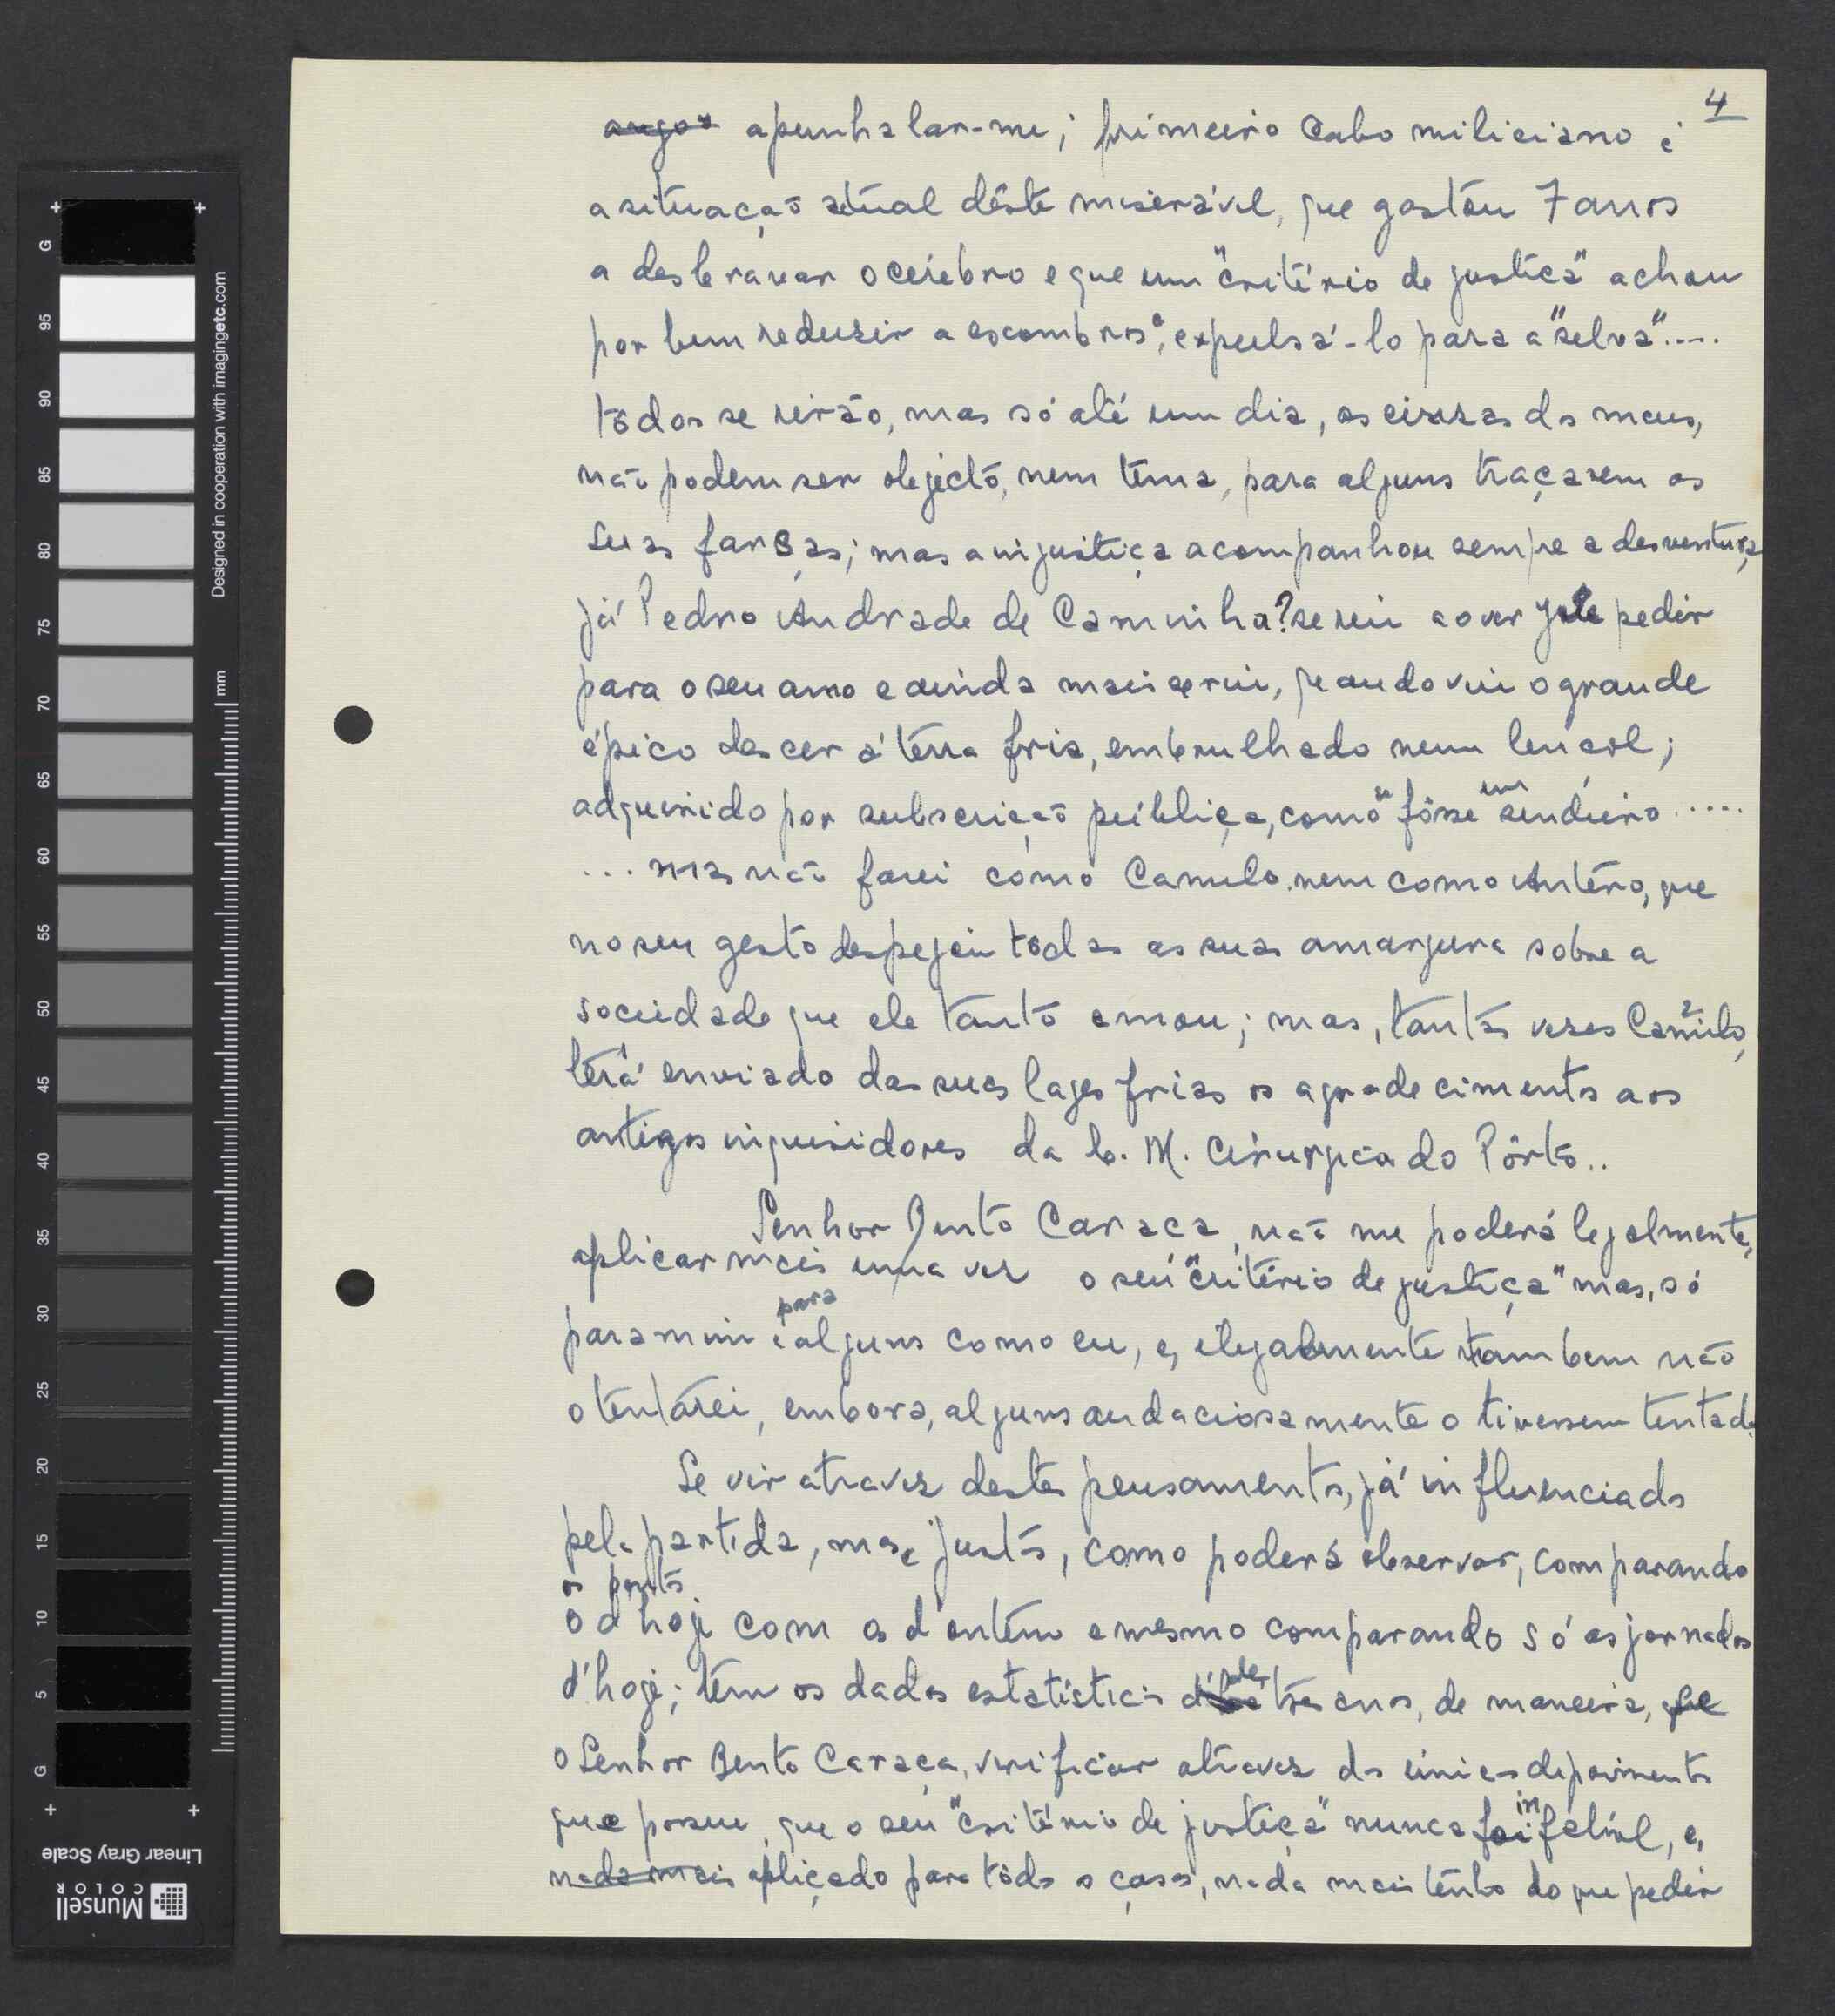 4
apunhalar-me; primeiro Cabo miliciano é
a situação atual dêste miserável, que gastou 7 anos
a desbravar o cérebro e que um "critério de justiça" achou
por bem reduzir a escombros e, expulsá-lo para a "selva"....
tôdos se rirão, mas só até um dia, as cinzas dos meus,
não podem ser objectó, nem têma, para alguns traçarem as
suas farsas; mas a injustiça acompanhou sempre a desventura,
já Pedro Andrade de Caminha? se riu ao ver pedir
para o seu amo e ainda mais se riu, quando viu o grande
épico descer á terra fria, embrulhado num lençol;
adquirido por subscrição pública, como se fôsse um sendeiro .....
... mas não farei como Camilo, nem como Antéro, que
no seu gesto despejou tôdas as suas amargura sobre a
sociedade que ele tanto amou; mas, tantas vezes Camilo,
terá enviado das suas lages frias os agradecimentos aos
antigos inquisidores da E. M. Cirurgica do Pôrto..
Senhor Bento Caraça, não me poderá legalmente,
aplicar mais uma vez o seu "critério de justiça" mas, só
para mim e para alguns como eu, e, ilegalmente tambem não
o tentárei, embora, alguns audaciosamente o tivessem tentado.
Se vir atravez destes pensamentos, já influenciados
pela partida, mas justos, como poderá observar, comparando
os pontos
o d'hoje com os d'ontem e mesmo comparando só as jornadas
d'hoje; têm os dados estatísticos de três anos, de maneira, que
o Senhor Bento Caraça, verificar atravez dos únicos depoimentos
que possue, que o seu "critério de justiça" nunca foi infalível, e,
nada mais aplicado para tôdos os casos, nada mais tenho do que pedir